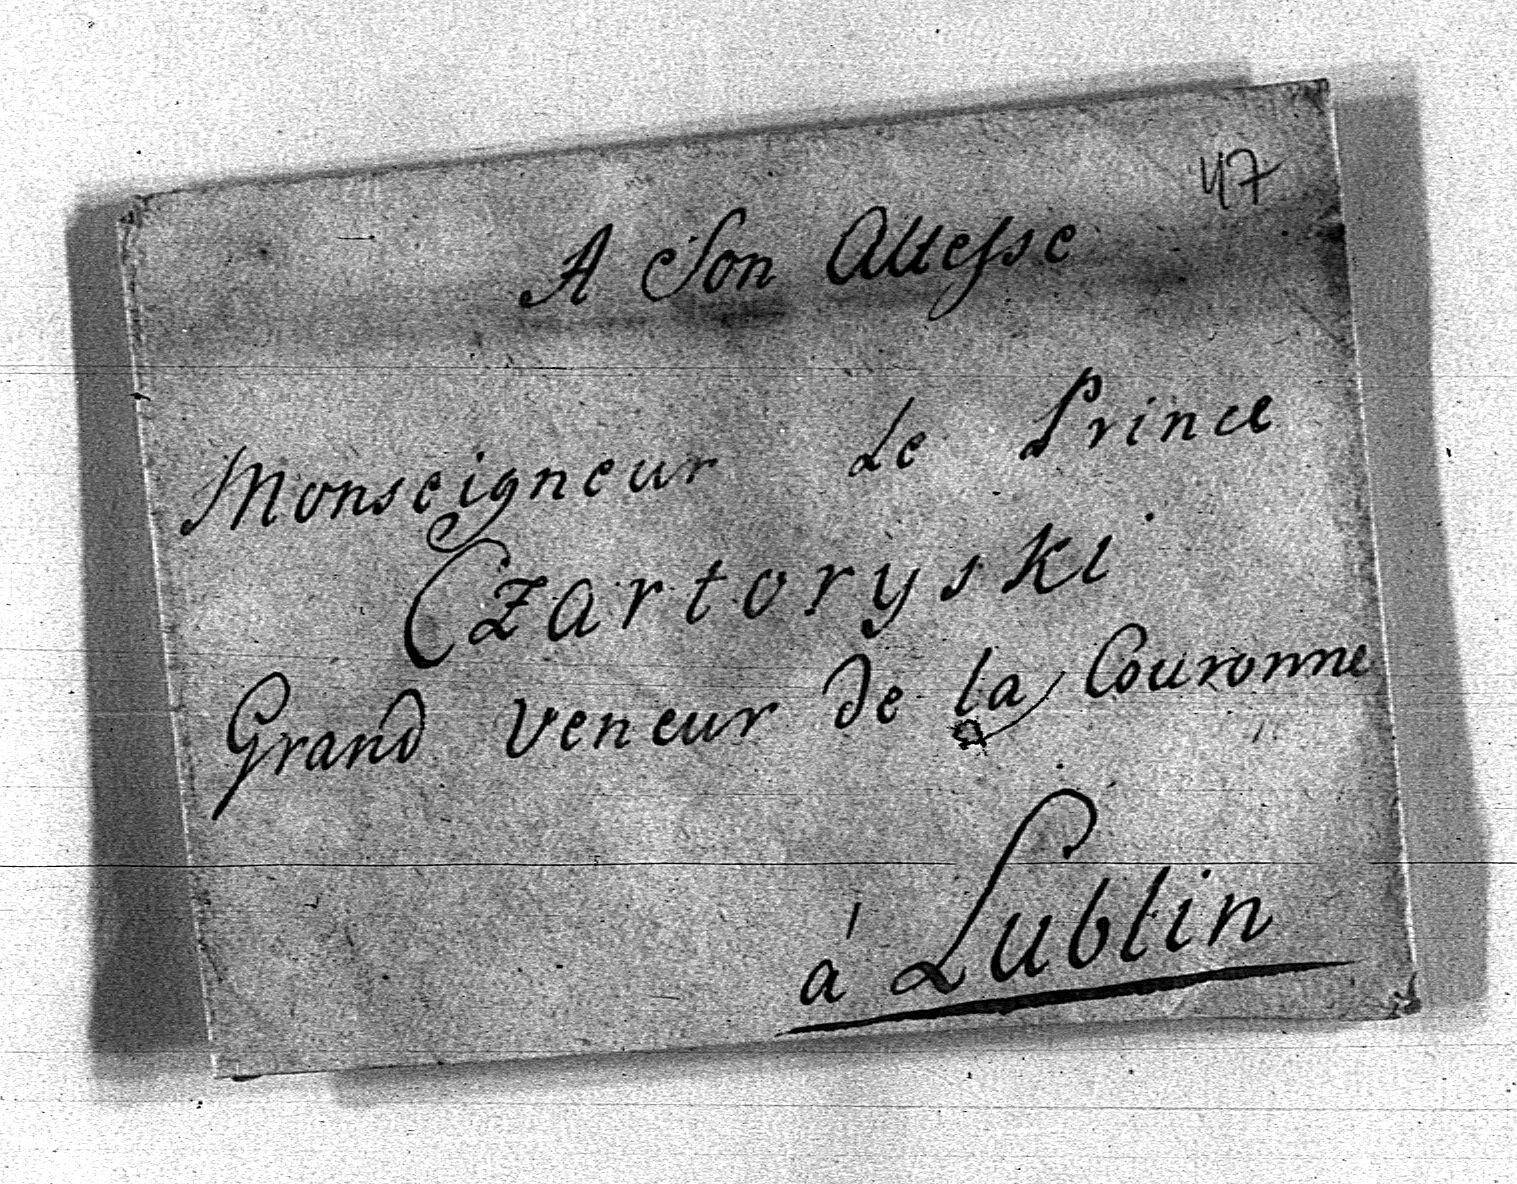 47
A Son Altesse
Monseigneur Le Prince
Czartoryski
Grand Veneur de la Couronne
á Lublin